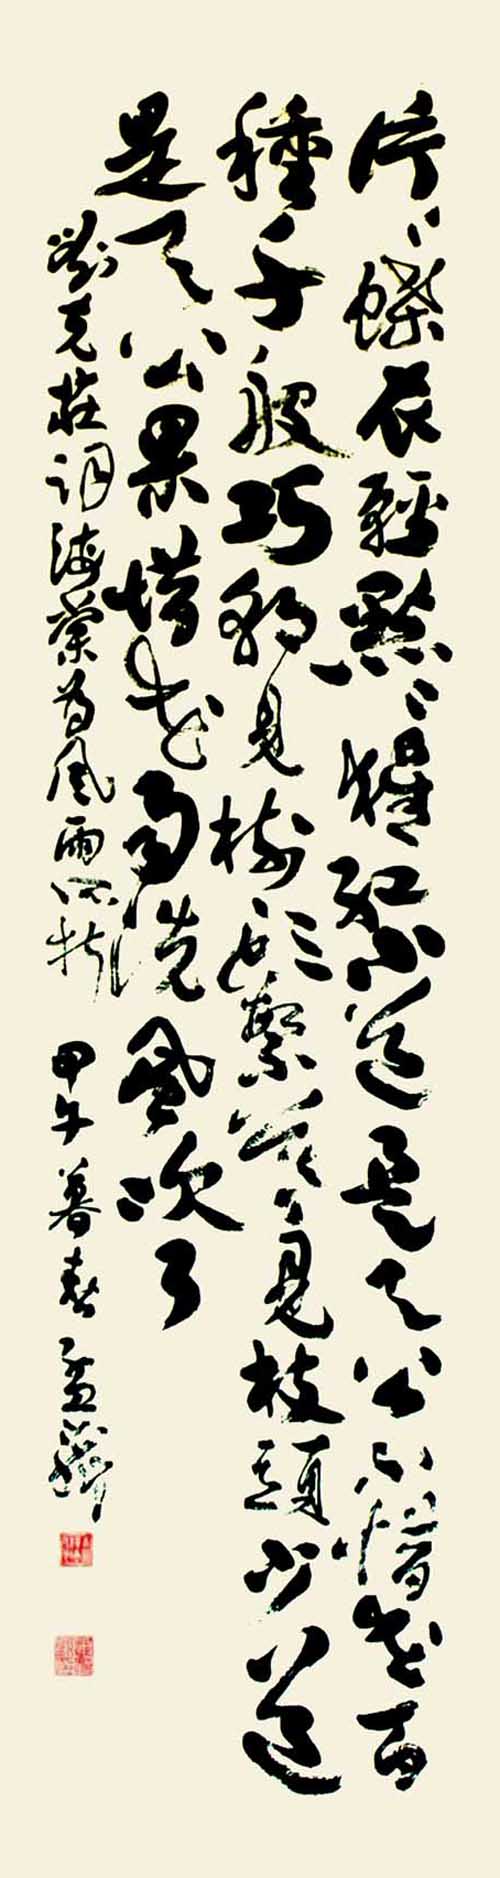 片片蝶衣輕點點猩紅小道是天公不惜花百
種千般巧朝見樹頭繁暮見枝頭少道
是天公果惜花雨洗風吹了
劉克莊詞海棠為風雨所損 甲午暮春 孟